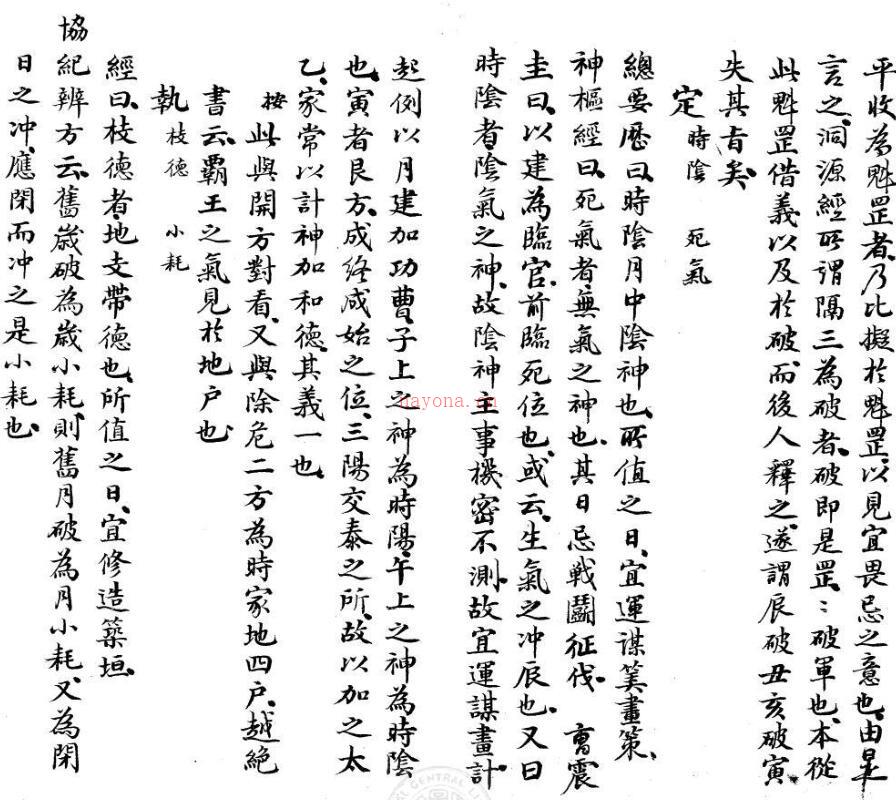 平收為魁罡者、乃比擬於魁罡、以見宜畏忌之意也、由是
言之、洞源經所謂隔三為破者、破即是罡、〻破軍也、本從
此魁罡借義以及於破、而後人釋之、遂謂辰破丑亥破寅、
失其旨矣、
定 時陰 死氣
總要歷曰、時陰月中陰神也、所值之日、宜運謀筭畫策、
神樞經曰、死氣者、無氣之神也、其日忌戰鬭征伐、 曹震
圭曰、以建為臨官、前臨死位也、或云、生氣之冲辰也、又曰
時陰者、陰氣之神、故陰神主事機密不測、故宜運謀畫計
起例以月建加功曹、子上之神為時陽、午上之神為時陰
也、寅者艮方、成終成始之位、三陽交泰之所、故以加之太
乙、家常以計神加和德、其義一也、
按此與開方對看、又與除危二方為時家地四户、越絕
書云、霸王之氣見於地户也、
執 枝德 小耗
經曰、枝德者、地支帶德也、所值之日、宜修造築垣、
協紀辨方云、舊歲破為歲小耗、則舊月破為月小耗、又為閉
日之冲、應閉而冲之、是小耗也、
hayona.cn
CENTRAL LI